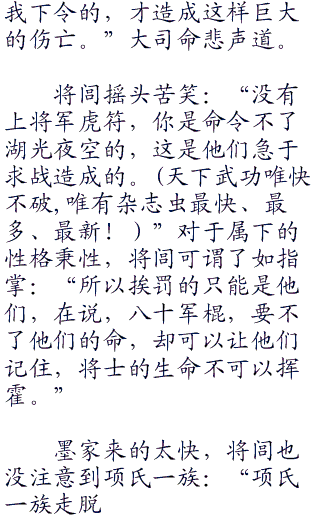 我下令的，才造成这样巨大
的伤亡。”大司命悲声道。
将闾摇头苦笑：“没有
上将军虎符，你是命令不了
湖光夜空的，这是他们急于
求战造成的。(天下武功唯快
不破,唯有杂志虫最快、最
多、最新！)”对于属下的
性格秉性，将闾可谓了如指
掌：“所以挨罚的只能是他
们，在说，八十军棍，要不
了他们的命，却可以让他们
记住，将士的生命不可以挥
霍。”
墨家来的太快，将闾也
没注意到项氏一族：“项氏
一族走脱